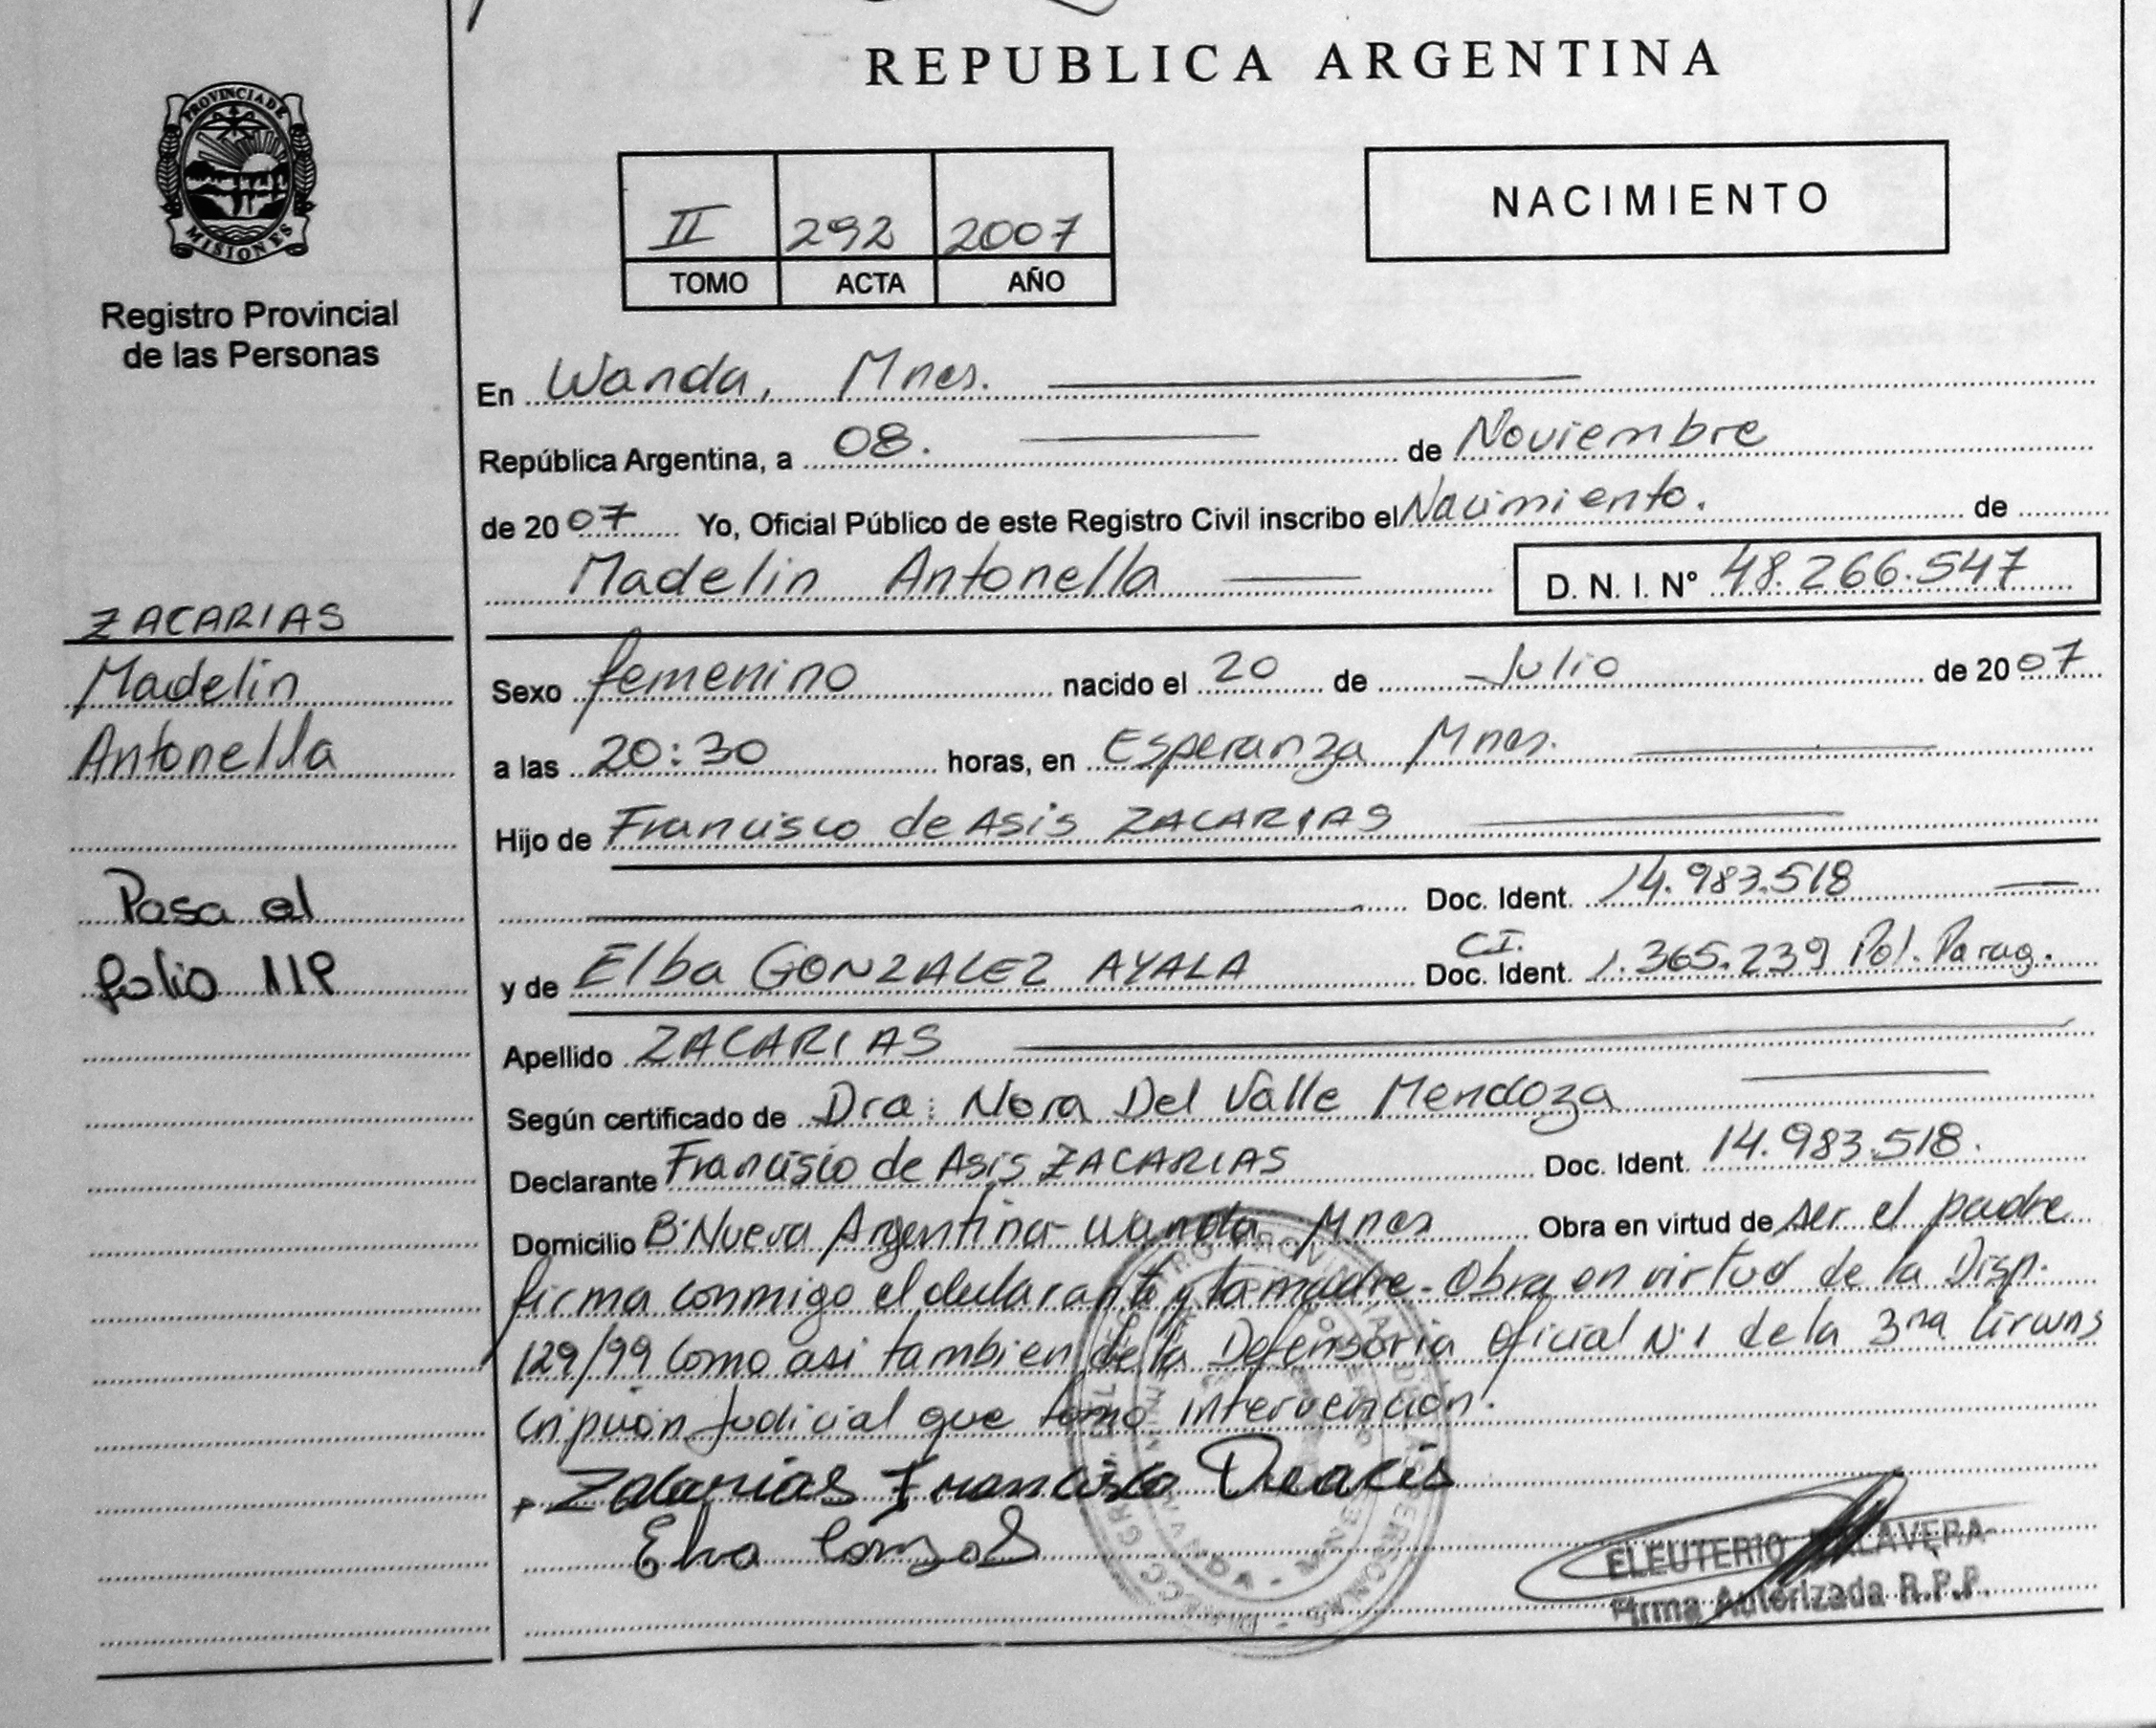 REPUBLICA ARGENTINA
PROVINCIA DE
MISIONES
Registro Provincial
de las Personas
II 292 2007
TOMO ACTA AÑO
NACIMIENTO
En Wanda, Mnes.
República Argentina, a 08. de Noviembre
de 2007 Yo, Oficial Público de este Registro Civil inscribo el Nacimiento. de
Madelin Antonella D. N. I. Nº 48.266.547
ZACARIAS
Madelin
Antonella
Pasa al
folio
Sexo femenino nacido el 20 de Julio de 2007
a las 20:30 horas, en Esperanza Mnes.
Hijo de Francisco de Asis ZACARIAS
Doc. Ident. 14.983.518
CI.
y de Elba GONZALEZ AYALA Doc. Ident. 1.365.239 Pol. Parag.
Apellido ZACARIAS
Según certificado de Dra: Nora Del Valle Mendoza
Declarante Francisco de Asis ZACARIAS Doc. Ident. 14.983.518.
Domicilio Bº Nueva Argentina - Wanda Mnes Obra en virtud de ser el padre
firma conmigo el declarante y la madre - Obra en virtud de la Disp.
129/99 como asi tambien de la Defensoria Oficial Nº 1 de la 3ra Circuns
cripción Judicial que tomo intervención.
Zacarias Francisco Deacis
ELEUTERIO TALAVERA
Firma Autorizada R.P.P.